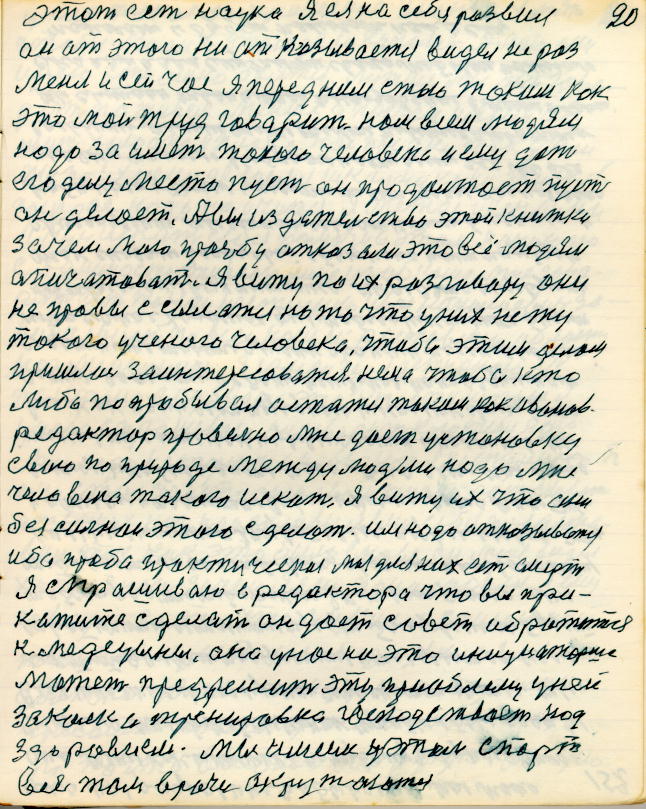 этот ест наука Я ея на себя развил 20
он от этого ни отказывается видел не раз
меня и сей час я перед ним стою таким как
это мой труд говарит. нам всем людям
надо заимет такого человека и ему дат
его делу место пуст он продолжает пуст
он делает. А вы издателство этой книжки
зачем маю прозбу отказали это всё людям
апичатоват. Я вижу по их разгавару они
не правы ссылатся на то что у них нету
такого ученого человека, чтобы этим делом
пришлос заинтересоватся. нема чтобы кто
либо попробывал остатся таким как иванов.
редактор правелно мне дает установку
свою по природе между людми надо мне
человека такого искат. Я вижу их что они
безсилнаи этого сделат. им надо отказыватся
ибо проба практическая для них ест смерт
Я спрашиваю в редактора что вы при-
кажите сделат он дает совет обратится
к медецыны. она у нас на это
может предрешит эту приоблему у ней
закалка тренировка господствает над
здоровием. Мы имеем у этом спорт
все там врачи окружаются